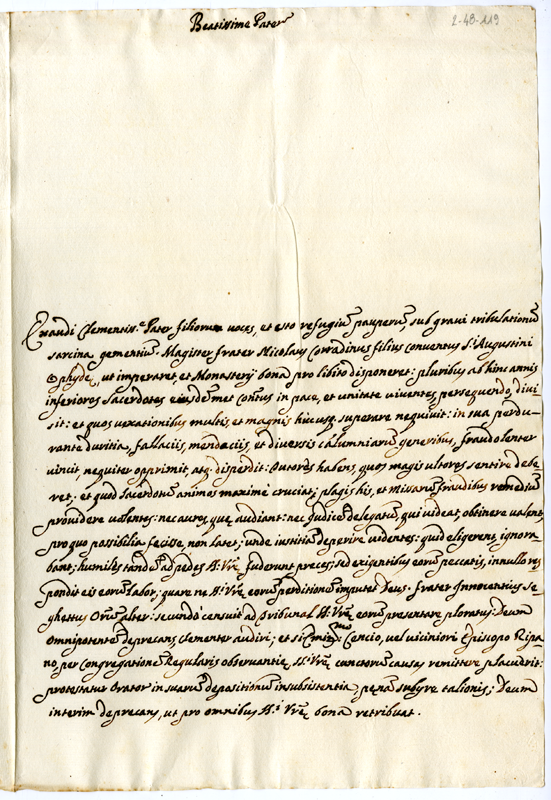 Beatissime Pater
2-48-119
Exaudi Clementiss.e Pater filiorum voces, et esto refugiũ pauperũ, sub gravi tribulationũ
sarcina gementiũ. Magister frater Nicolaus Corradinus filius conventus S.ti Augustini
ut imperaret, et Monasterÿ bona pro libito disponeret: pluribus ab hinc annis
inferiores Sacerdotes eiusdẽ met Cõntus in pace, et unitate viventes, persequendo, divi
sit: et quos vexationibus multis, et magnis hucusq; superare nequivit: in sua perdu-
rante duritia, fallaciis, mendaciis, et diversis calumniarũ generibus, fraudolenter
vincit, nequiter opprimit, atq; disperdit: Tutores habens, quos magis ultores sentire debe
ret; et quod Sacerdotũ animos maximè cruciat; plagis his, et missarũ fraudibus remediũ
providere volentes: nec aures, quę audiant: nec Iudicẽ delegatũ, qui videat, obtinere valent,
pro quo possibilia fecisse, non latet; unde iustitiã deperire videntes: quid eligerent, ignora
bant; humiles tandẽ ad pedes B. Vrę fuderunt preces; sed exigentibus eorũ peccatis, in nullo res
pondit eis eorũ labor; quare ne B. Vrę eorũ perditionẽ imputet Deus: frater Innocentius Se
ghettus Orũ alter: secundò censuit ad tribunal B. Vrę eorũ presentare ploratus: Deum
Omnipotentẽ deprecans, clementer audiri; et si Cencio, vel viciniori Episcopo Ripa
no, per Congregationẽ Regularis observantię, S. Vrę, cunctorũ causas remittere placuerit:
protestatur Orator in suarũ depositionũ insubsistentia, pęnã subÿre talionis; Deum
interim deprecans, ut pro omnibus B.i Vrę bona retribuat.